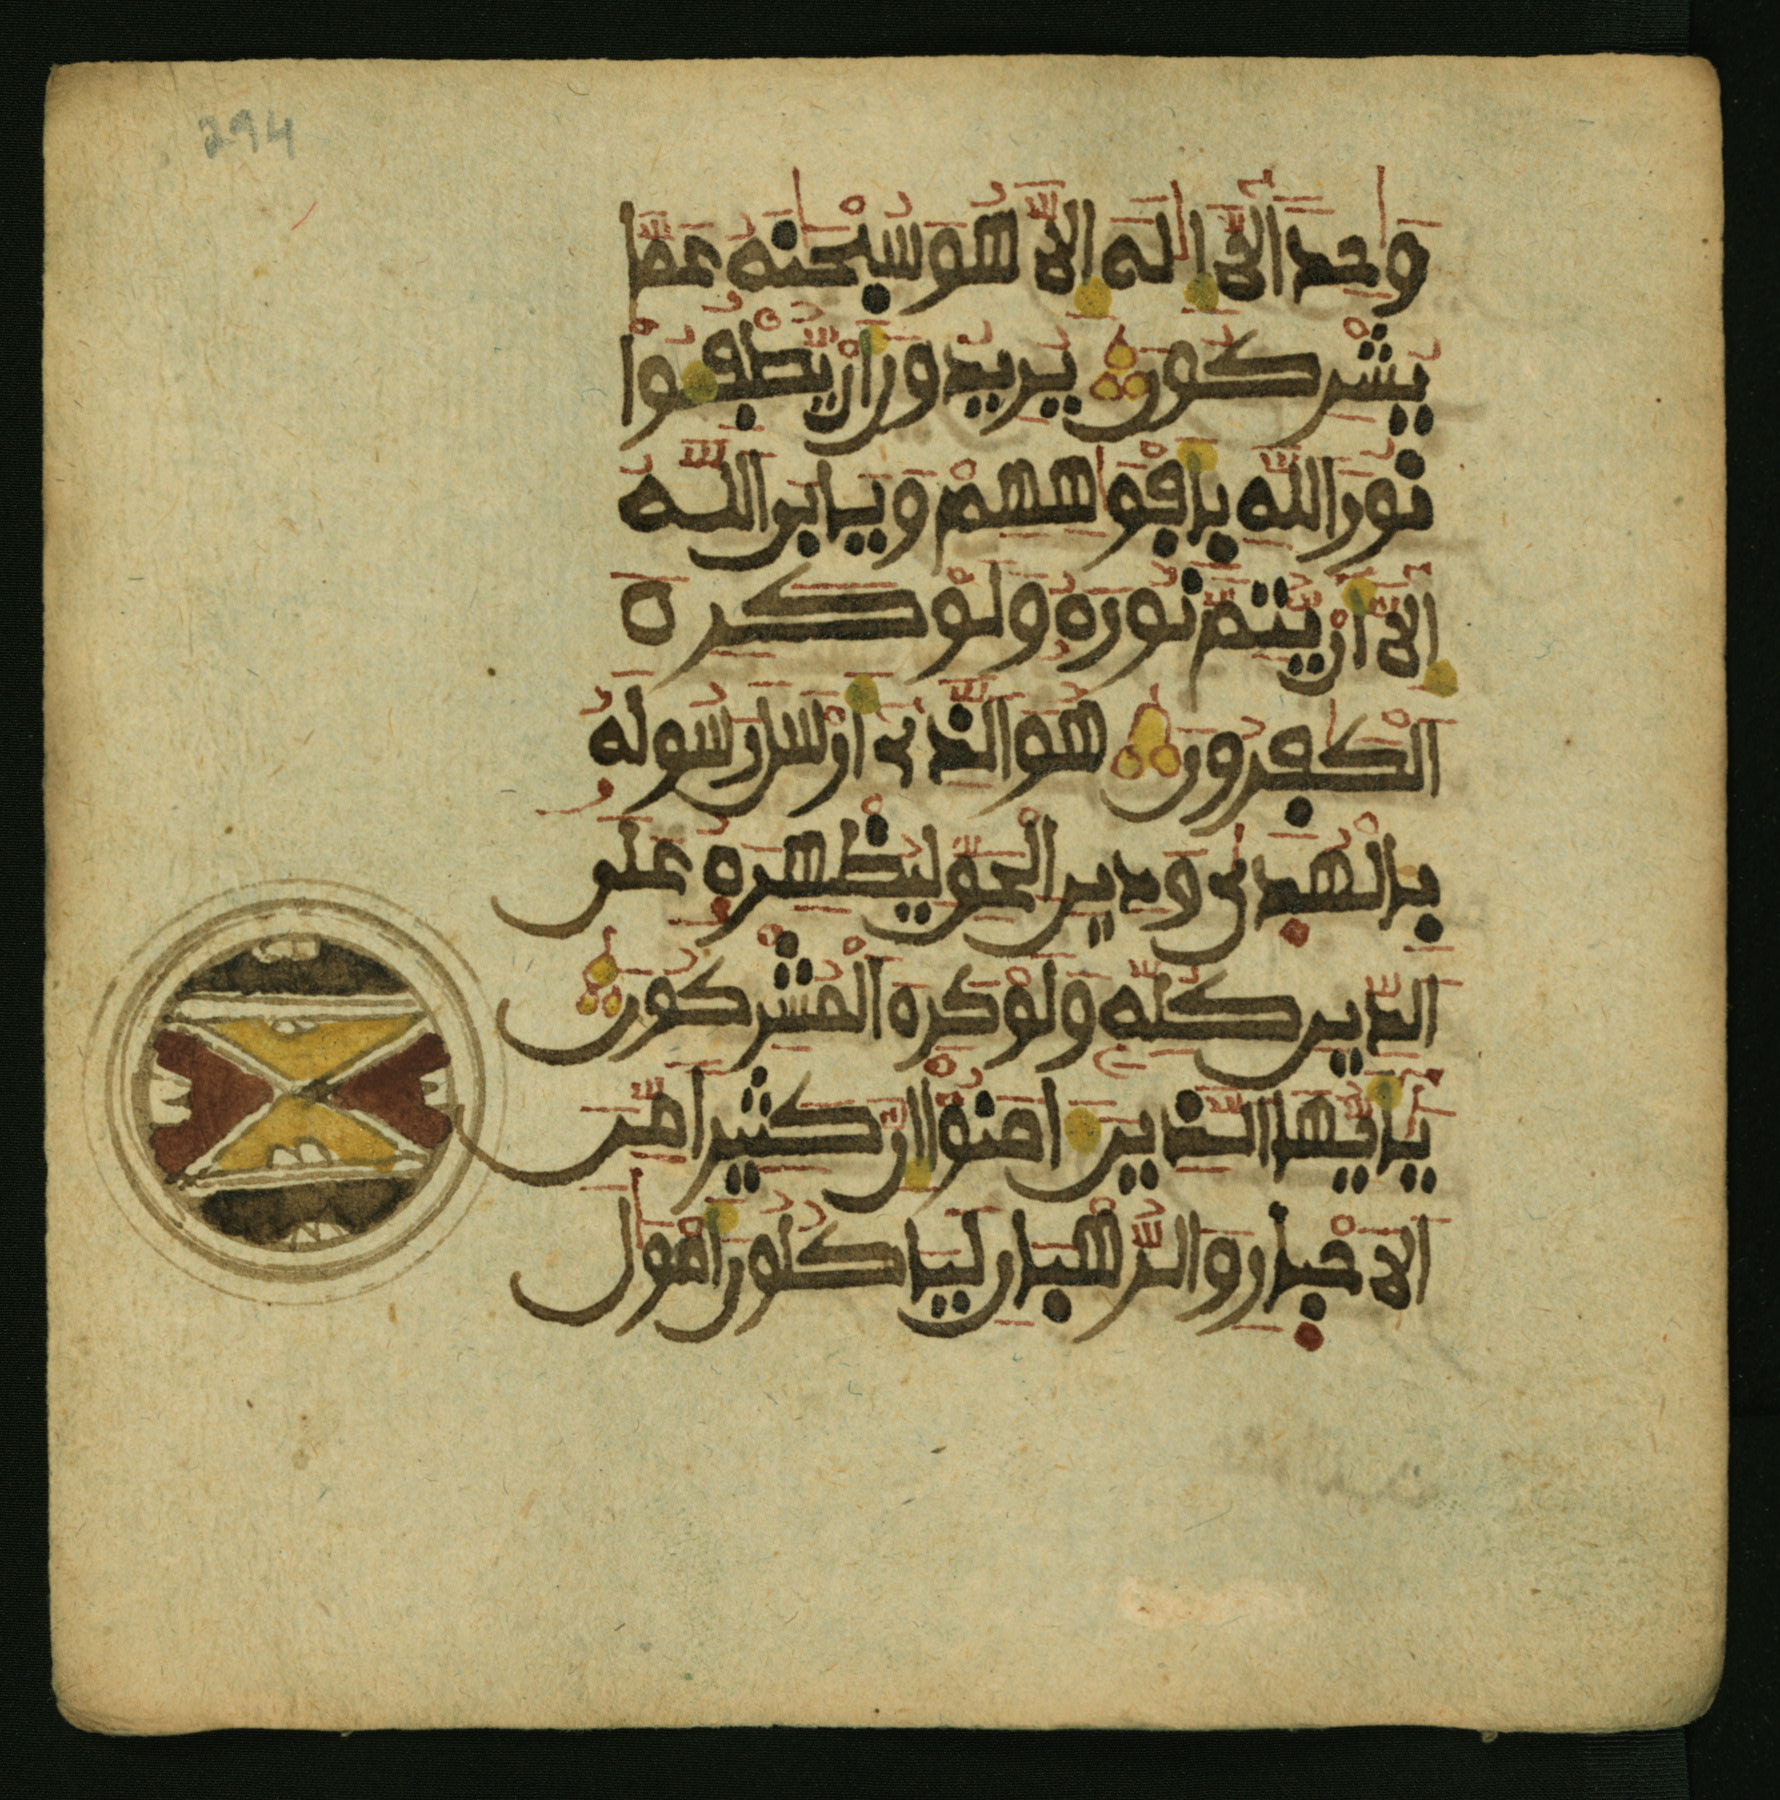 294
وٰحدا لا اله الا هو سبحٰنه عما
يشركون يريدون ان يطفـٔوا
نور الله بافوٰههم ويابى الله
الا ان يتم نوره ولو كره
الكٰفرون هو الذى ارسل رسوله
بالهدى ودين الحق ليظهره على
الدين كله ولو كره المشركون
يايها الذين امنوا ان كثيرا من
الاحبار والرهبان لياكلون امول